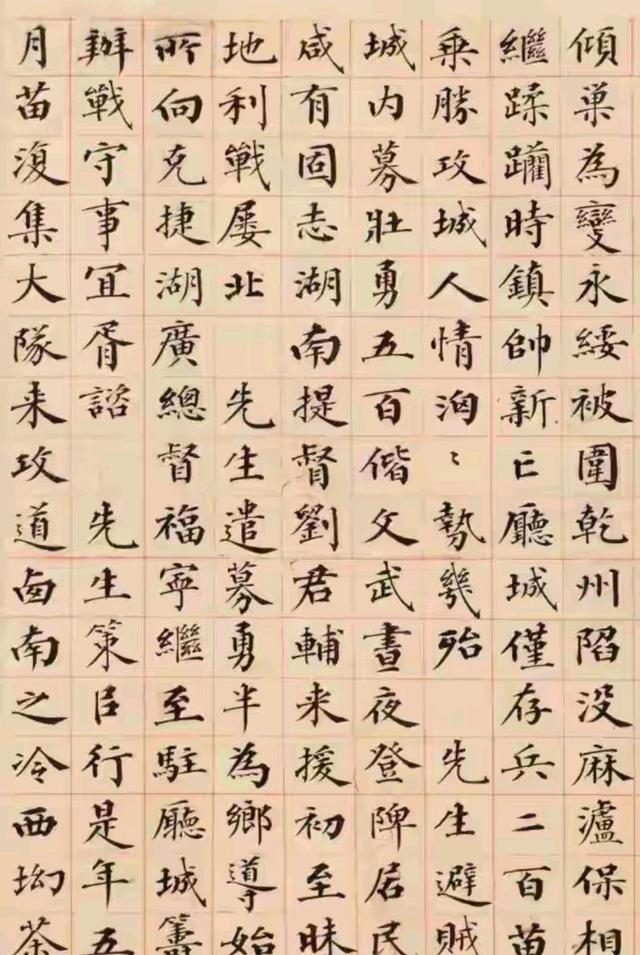 傾巢為變永綏被圍乾州陷没麻瀘保相
繼蹂躪時鎮帥新亡廳城僅存兵二百苗
乗勝攻城人情洶〻勢幾殆 先生避賊
城内募壯勇五百偕文武晝夜登陴居民
咸有固志湖南提督劉君輔来援初至昧
地利戰屢北 先生遣募勇半為鄉導始
所向克捷湖廣總督福寧繼至駐廳城籌
辦戰守事宜胥諮 先生策臣行是年五
月苗復集大隊来攻道鹵南之冷西坳茶